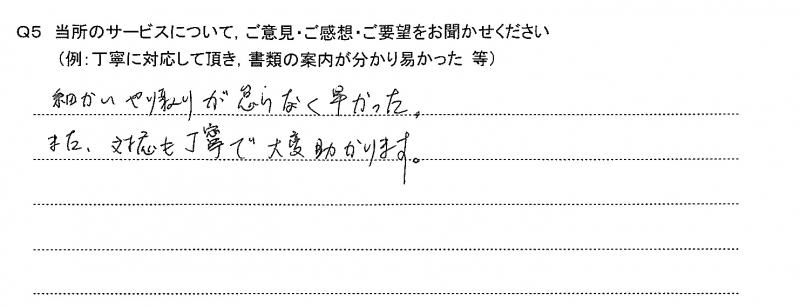 Q5 当所のサービスについて,ご意見・ご感想・ご要望をお聞かせください
(例:丁寧に対応して頂き,書類の案内が分かり易かった 等)
細かいやり取りが怠らなく早かった。
また、対応も丁寧で大変助かります。